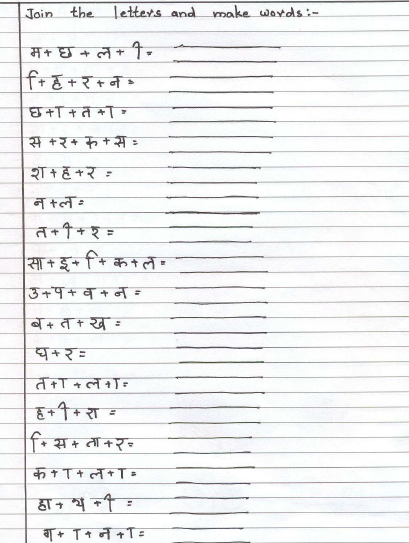 Join the letters and make words:-
म + छ + ल + ी =
ि + ह + र + न =
छ + ा + त + ा =
स + र + क + स =
श + ह + र =
न + ल =
त + ी + र =
सा + इ + ि + क + ल =
उ + प + व + न =
ब + त + ख =
घ + र =
त + ा + ल + ा =
ह + ी + रा =
ि + स + ता + र =
क + ा + ल + ा =
हा + थ + ी =
ग + ा + न + ा =